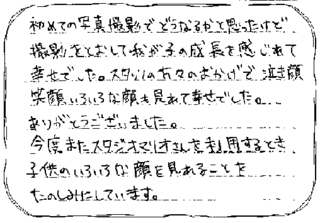 初めての写真撮影でどうなるかと思ったけど
撮影をとおして我が子の成長を感じれて
幸せでした。スタジオの方々のおかげで泣き顔
笑顔いろいろな顔も見れて幸せでした。
ありがとうございました。
今度またスタジオマリオさんを利用するとき
子供のいろいろな顔を見れることを
たのしみにしています。